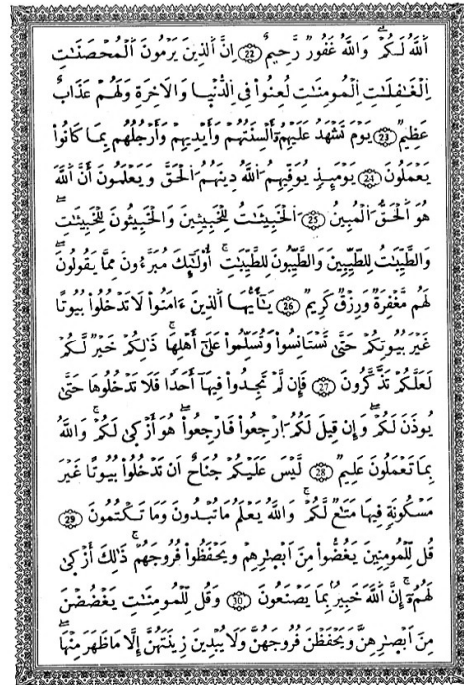 اَ۬للَّهُ لَكُمْ وَاللَّهُ غَفُورٌ رَّحِيمٌ 22 إِنَّ اَ۬لذِينَ يَرْمُونَ اَ۬لْمُحْصَنَٰتِ
اِ۬لْغَٰفِلَٰتِ اِ۬لْمُومِنَٰتِ لُعِنُواْ فِى اِ۬لدُّنْيَا وَالَاخِرَةِ وَلَهُمْ عَذَابٌ
عَظِيمٌ 23 يَوْمَ تَشْهَدُ عَلَيْهِمُۥٓ أَلْسِنَتُهُمْ وَأَيْدِيهِمْ وَأَرْجُلُهُم بِمَا كَانُواْ
يَعْمَلُونَ 24 يَوْمَئِذٍ يُوَفِّيهِمُ اُ۬للَّهُ دِينَهُمُ اُ۬لْحَقَّ وَيَعْلَمُونَ أَنَّ اَ۬للَّهَ
هُوَ اَ۬لْحَقُّ اُ۬لْمُبِينُ 25 اَ۬لْخَبِيثَٰتُ لِلْخَبِيثِينَ وَالْخَبِيثُونَ لِلْخَبِيثَٰتِ
وَالطَّيِّبَٰتُ لِلطَّيِّبِينَ وَالطَّيِّبُونَ لِلطَّيِّبَٰتِ أُوْلَٰٓئِكَ مُبَرَّءُونَ مِمَّا يَقُولُونَ
لَهُم مَّغْفِرَةٌ وَرِزْقٌ كَرِيمٌ 26 يَٰٓأَيُّهَا اَ۬لذِينَ ءَامَنُواْ لَا تَدْخُلُواْ بُيُوتًا
غَيْرَ بُيُوتِكُمْ حَتَّىٰ تَسْتَانِسُواْ وَتُسَلِّمُواْ عَلَىٰٓ أَهْلِهَا ذَٰلِكُمْ خَيْرٌ لَّكُمْ
لَعَلَّكُمْ تَذَّكَّرُونَ 27 فَإِن لَّمْ تَجِدُواْ فِيهَآ أَحَدًا فَلَا تَدْخُلُوهَا حَتَّىٰ
يُوذَنَ لَكُمْ وَإِن قِيلَ لَكُمُ اُ۪رْجِعُواْ فَارْجِعُواْ هُوَ أَزْكَىٰ لَكُمْ وَاللَّهُ
بِمَا تَعْمَلُونَ عَلِيمٌ 28 لَّيْسَ عَلَيْكُمْ جُنَاحٌ اَن تَدْخُلُواْ بُيُوتًا غَيْرَ
مَسْكُونَةٍ فِيهَا مَتَٰعٌ لَّكُمْ وَاللَّهُ يَعْلَمُ مَا تُبْدُونَ وَمَا تَكْتُمُونَ 29
قُل لِّلْمُومِنِينَ يَغُضُّواْ مِنَ اَبْصٰ۪رِهِمْ وَيَحْفَظُواْ فُرُوجَهُمْ ذَٰلِكَ أَزْكَىٰ
لَهُمُۥٓ إِنَّ اَ۬للَّهَ خَبِيرٌۢ بِمَا يَصْنَعُونَ 30 وَقُل لِّلْمُومِنَٰتِ يَغْضُضْنَ
مِنَ اَبْصٰ۪رِهِنَّ وَيَحْفَظْنَ فُرُوجَهُنَّ وَلَا يُبْدِينَ زِينَتَهُنَّ إِلَّا مَا ظَهَرَ مِنْهَا